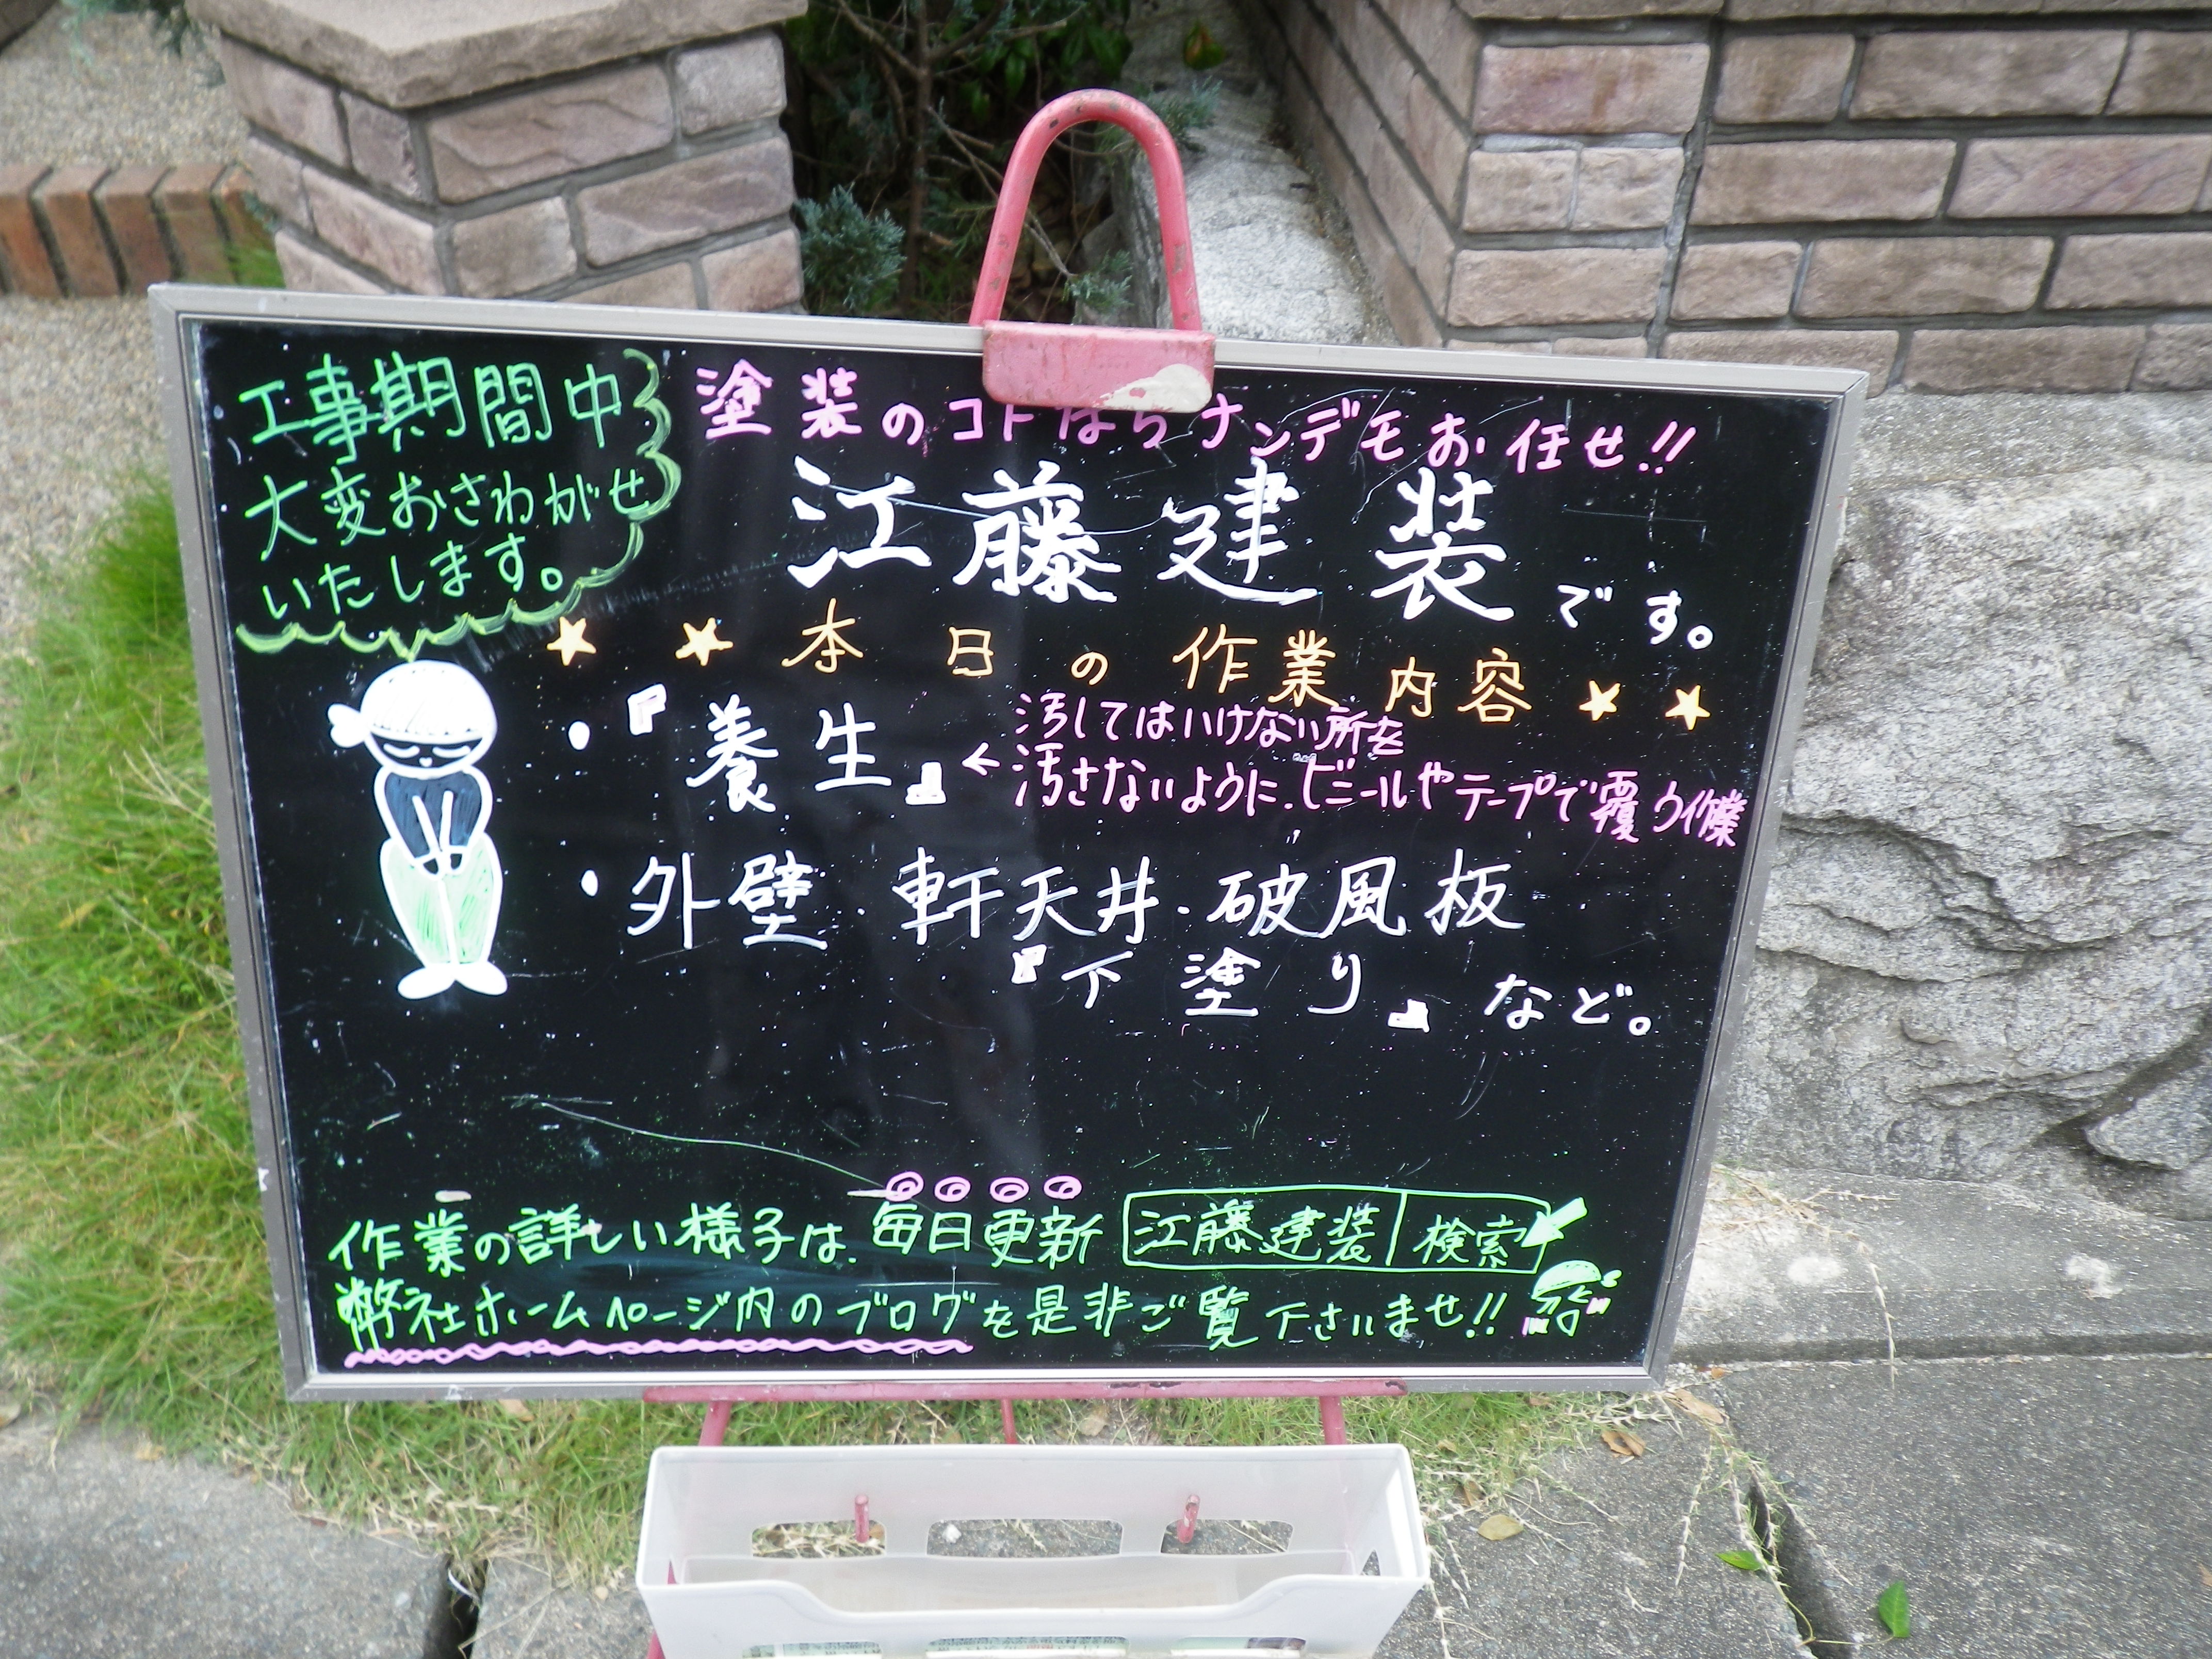 工事期間中
大変おさわがせ
いたします。
塗装のコトならナンデモお任せ!!
江藤建装です。
★ ★ 本日の作業内容 ★ ★
・『養生』
←汚してはいけない所を
汚さないように、ビニールやテープで覆う作業
・外壁・軒天井・破風板
『下塗り』など。
作業の詳しい様子は、毎日更新 江藤建装 検索
弊社ホームページ内のブログを是非ご覧下さいませ!!